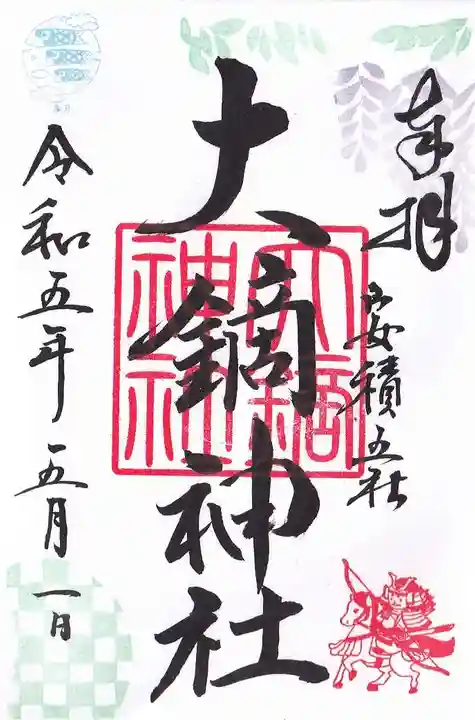 奉拝
安積五社
大鏑神社
大鏑神社
令和五年五月一日